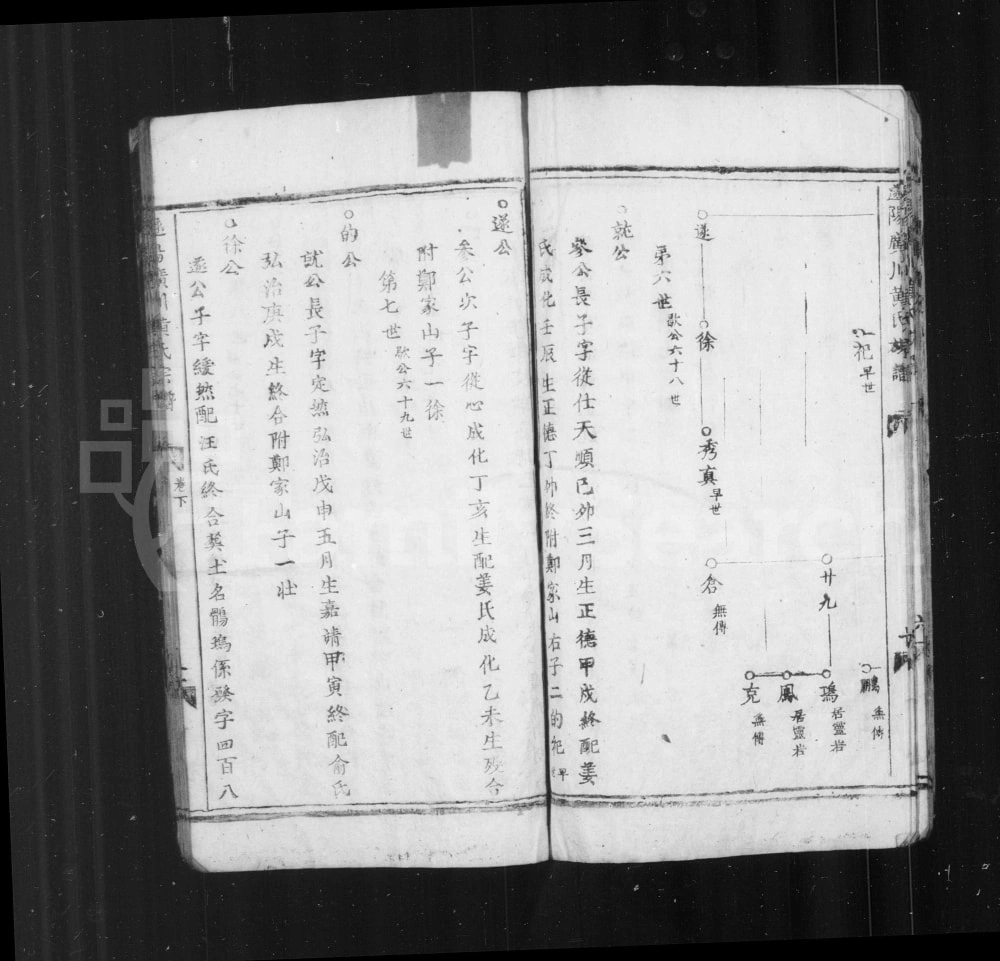 犯早世
鵬無傳
廿九
瑪居靈岩
鳳居靈岩
克無傳
遂
徐
秀真早世
倉無傳
第六世歙公六十八世
就公
參公長子字從仕天順己卯三月生正德甲戌終配姜
氏成化壬辰生正德丁卯終附鄭家山右子二的犯早
遂公
參公次子字從心成化丁亥生配姜氏成化乙未生歿合
附鄭家山子一徐
第七世歙公六十九世
的公
就公長子字定然弘治戊申五月生嘉請甲寅終配俞氏
弘治庚戌生終合附鄭家山子一壯
徐公
遂公子字緩然配汪氏終合葬土名鶻塢係發字四百八
卷下